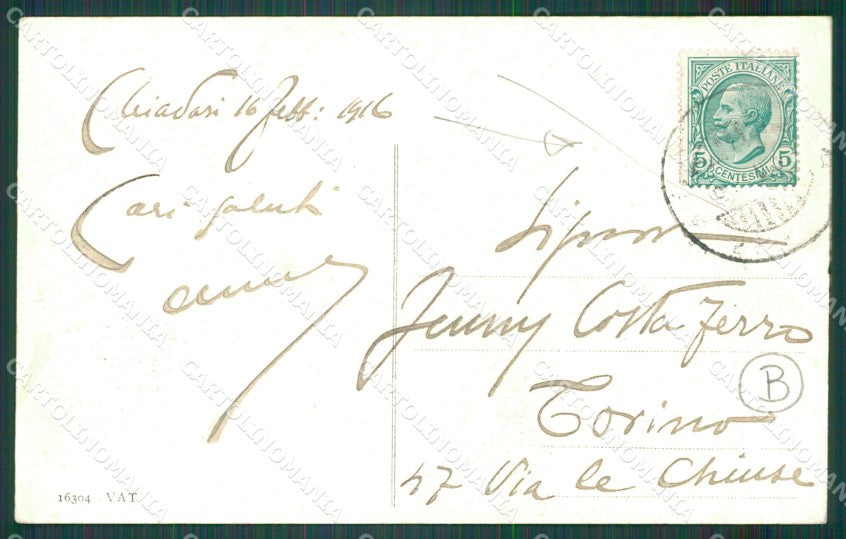 Chiavari 16 Febb: 1916
Cari saluti
POSTE ITALIANE
5 5
CENTESIMI
Signora
Jenny Costa Ferro
Torino
47 Via le Chiuse
B
16304 VAT
CARTOLINOMANIA